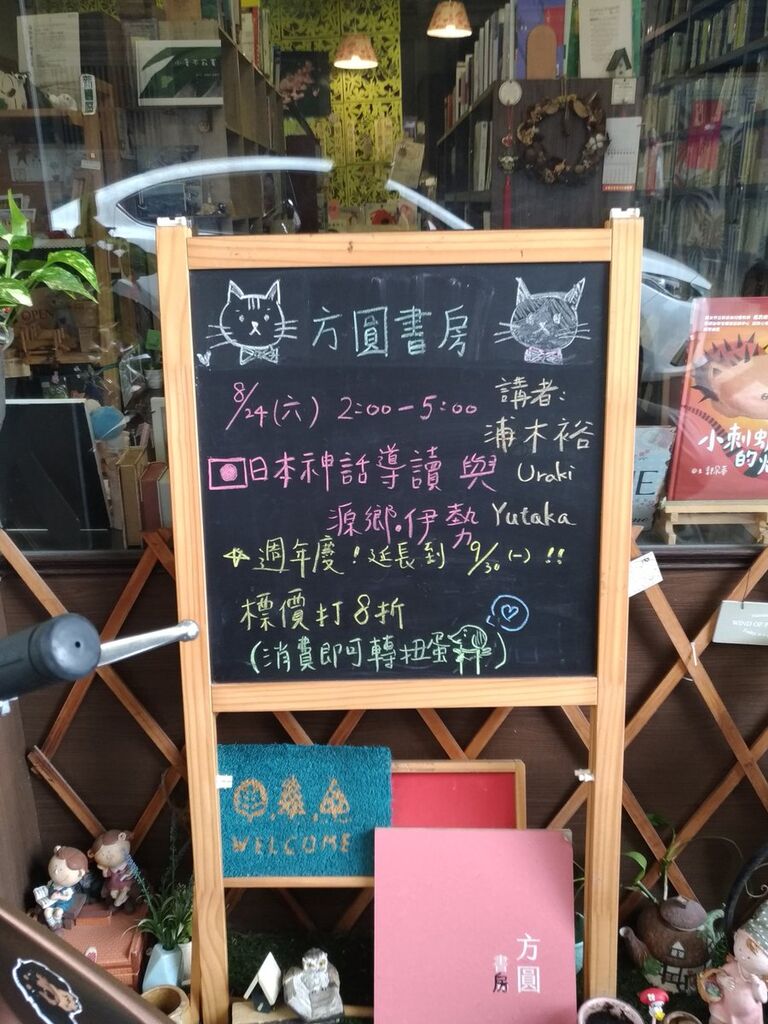 方圓書房
8/24(六) 2:00-5:00
講者:
浦木裕
Uraki
Yutaka
日本神話導讀與
源鄉•伊勢
週年慶!延長到9/30(一)!!
標價打8折
(消費即可轉扭蛋)
WELCOME
方圓
書房
小刺蝟
的
OPEN
WIND OF